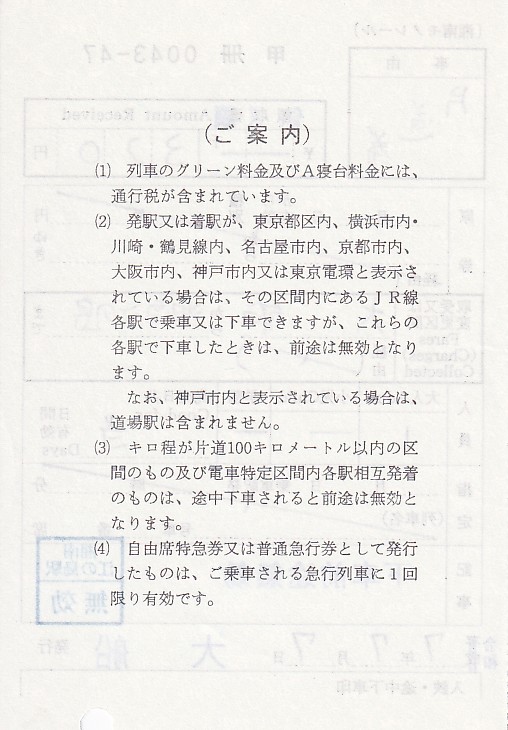 (ご案内)
(1) 列車のグリーン料金及びA寝台料金には、
通行税が含まれています。
(2) 発駅又は着駅が、東京都区内、横浜市内・
川崎・鶴見線内、名古屋市内、京都市内、
大阪市内、神戸市内又は東京電環と表示さ
れている場合は、その区間内にあるJR線
各駅で乗車又は下車できますが、これらの
各駅で下車したときは、前途は無効となり
ます。
なお、神戸市内と表示されている場合は、
道場駅は含まれません。
(3) キロ程が片道100キロメートル以内の区
間のもの及び電車特定区間内各駅相互発着
のものは、途中下車されると前途は無効と
なります。
(4) 自由席特急券又は普通急行券として発行
したものは、ご乗車される急行列車に1回
限り有効です。